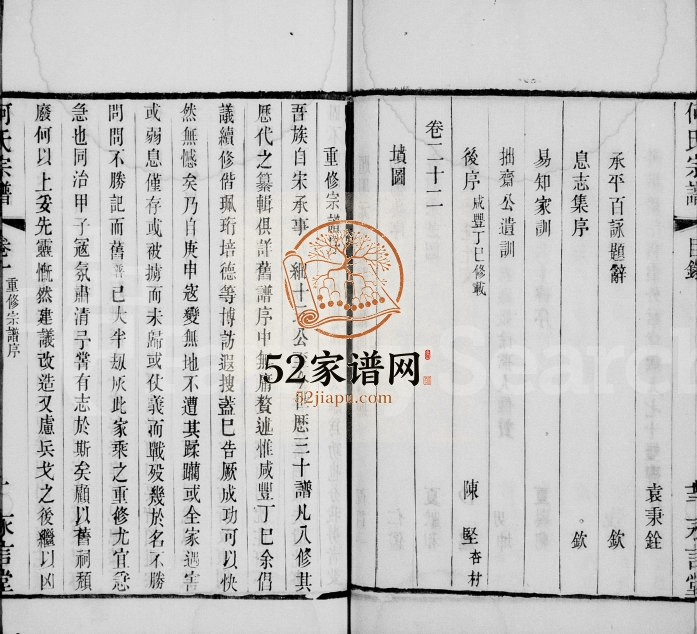 何氏宗譜
目錄
袁秉銓
承平百詠題辭 欽
息志集序 欽
易知家訓
拙齋公遺訓
後序 咸豐丁巳修載 陳堅杏村
卷二十二
墳圖
重修宗譜序
吾族自宋承事 十二公 歷三十譜凡八修其
歷代之纂輯俱詳舊譜序中無庸贅述惟咸豐丁巳余倡
議續修偕珮珩培德等博訪遐搜蓋已告厥成功可以快
然無憾矣乃自庚申寇變無地不遭其蹂躪或全家遇害
或弱息僅存或被擄而未歸或仗義而戰歿幾於名不勝
問問不勝記而舊譜已大半劫灰此家乘之重修尤宜急
急也同治甲子寇氛肅清予嘗有志於斯矣顧以舊祠頹
廢何以上妥先靈慨然建議改造又慮兵戈之後繼以凶
何氏宗譜
卷十
重修宗譜序
52家谱网
52jiapu.com